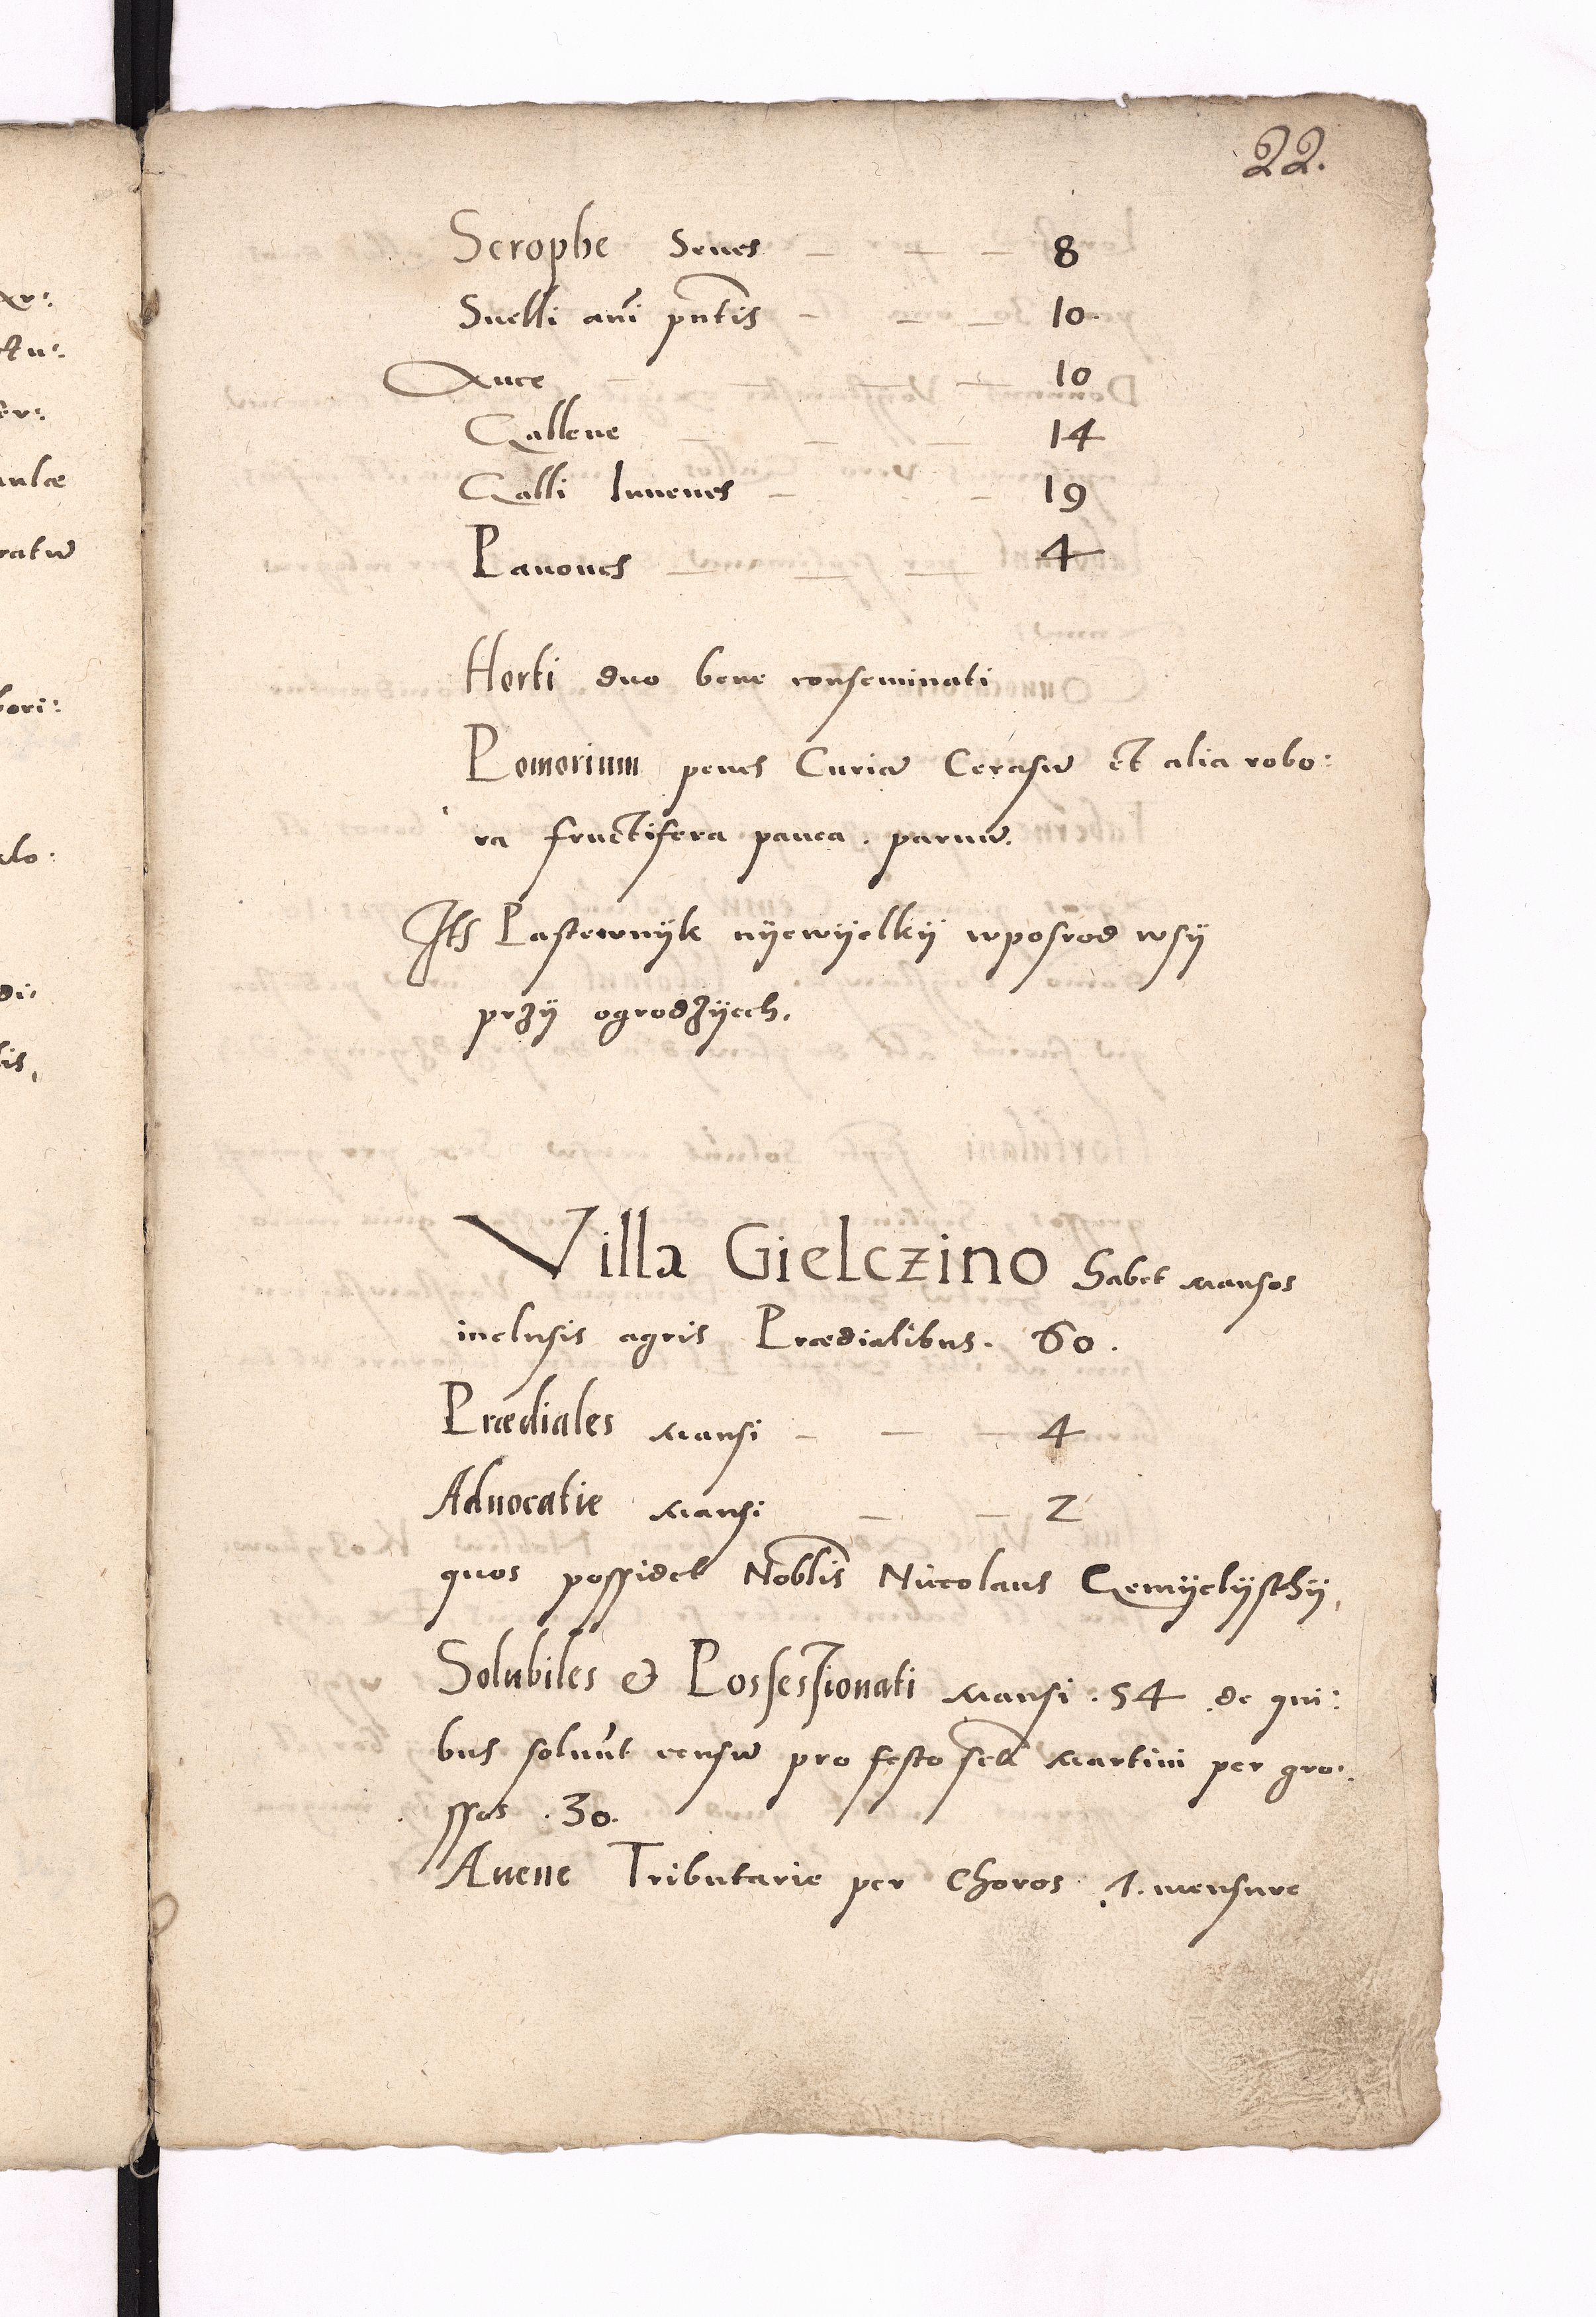 22.
Scrophe Senes — — — 8
Suelli anī pn̄tis — — — 10.
Auce — — — 10
Gallene — — — 14
Galli Iuuenes — — 19
Pauones — — — 4
Horti duo bene conseminati
Pomorium penes Curiā Cerasū et alia robo:
ra fructifera pauca. paruū.
Pastewnÿk nÿewÿelkÿ wposrod wsÿ
przÿ ogrodzÿech.
Villa Gielczino habet mansos
inclusis agris Prædialibus. 60.
Prædiales mansi — — — 4
Aduocatie mansi — — 2
quos possidet Noblis̄ Nicolaus
Solubiles & Possessionati mansi. 54 de qui:
bus soluūt censū pro festo scti Martini per gro:
ssos .30.
Auene Tributarie per Choros .1. mensure